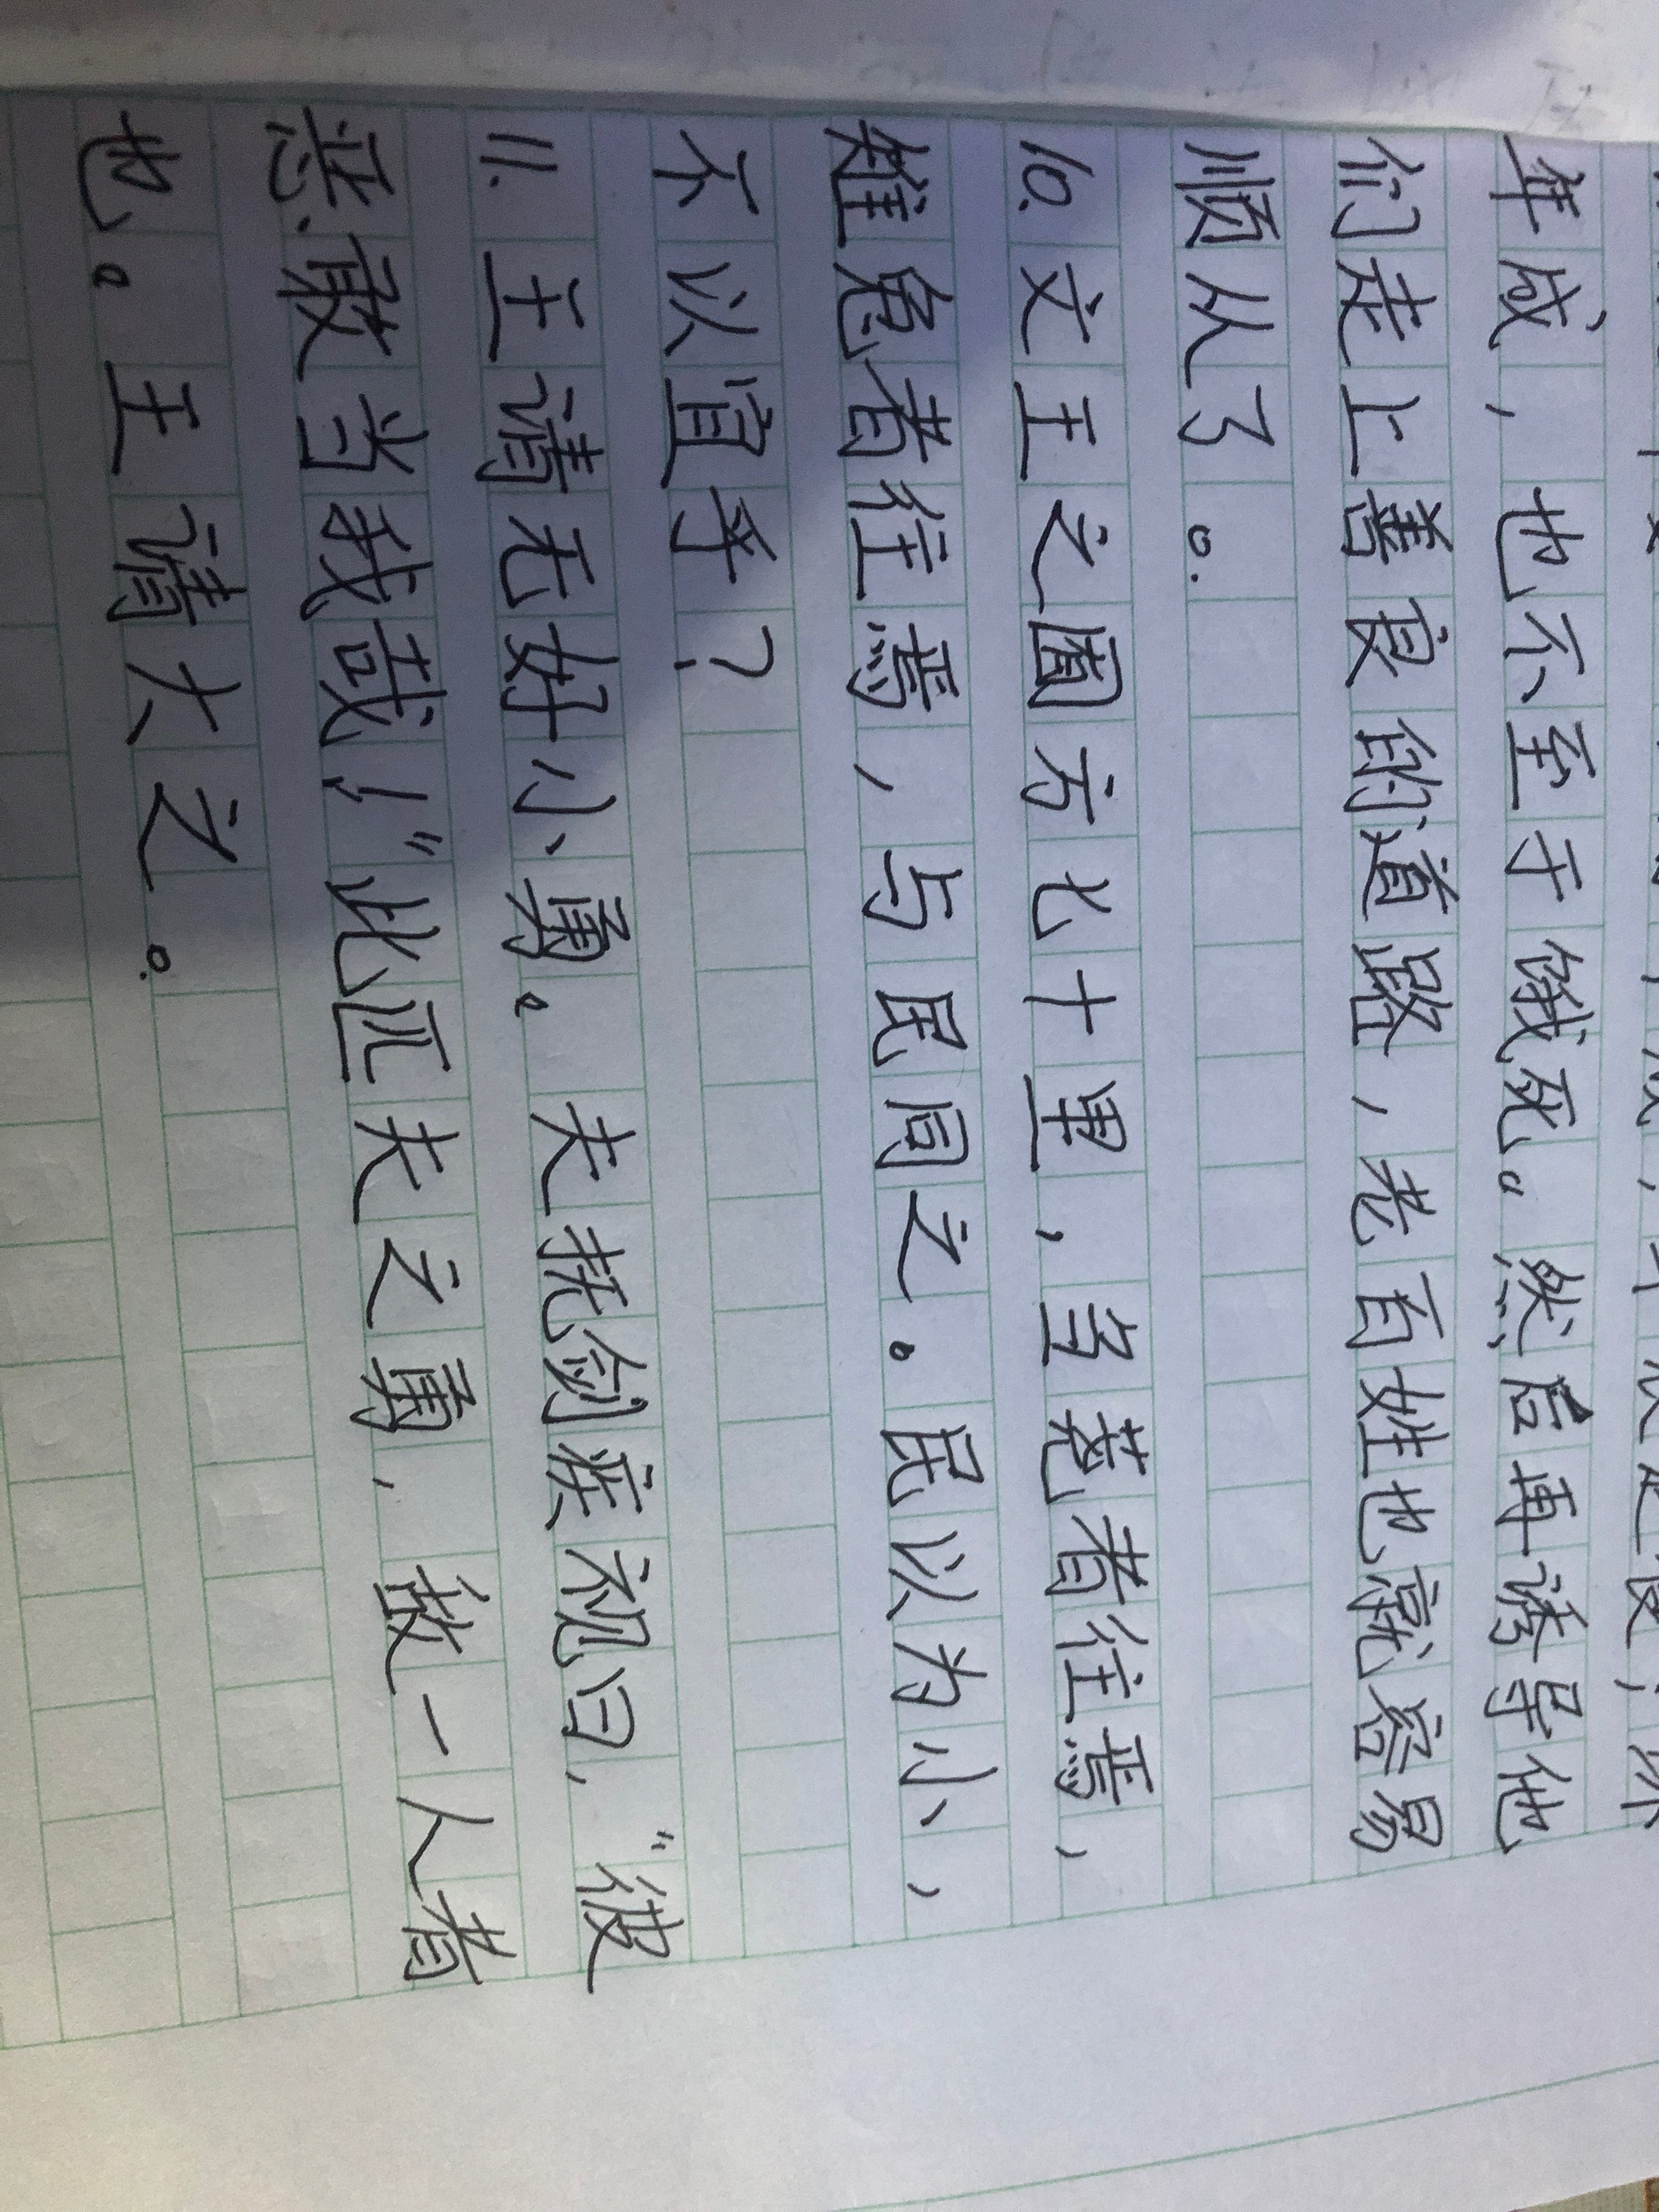 年成，也不至于饿死。然后再诱导他
们走上善良的道路，老百姓也就容易
顺从了。
10.文王之囿方七十里，刍荛者往焉，
雉兔者往焉，与民同之。民以为小，
不以宜乎？
11.王请无好小勇。夫抚剑疾视曰，“彼
恶敢当我哉！”此匹夫之勇，敌一人者
也。王请大之。